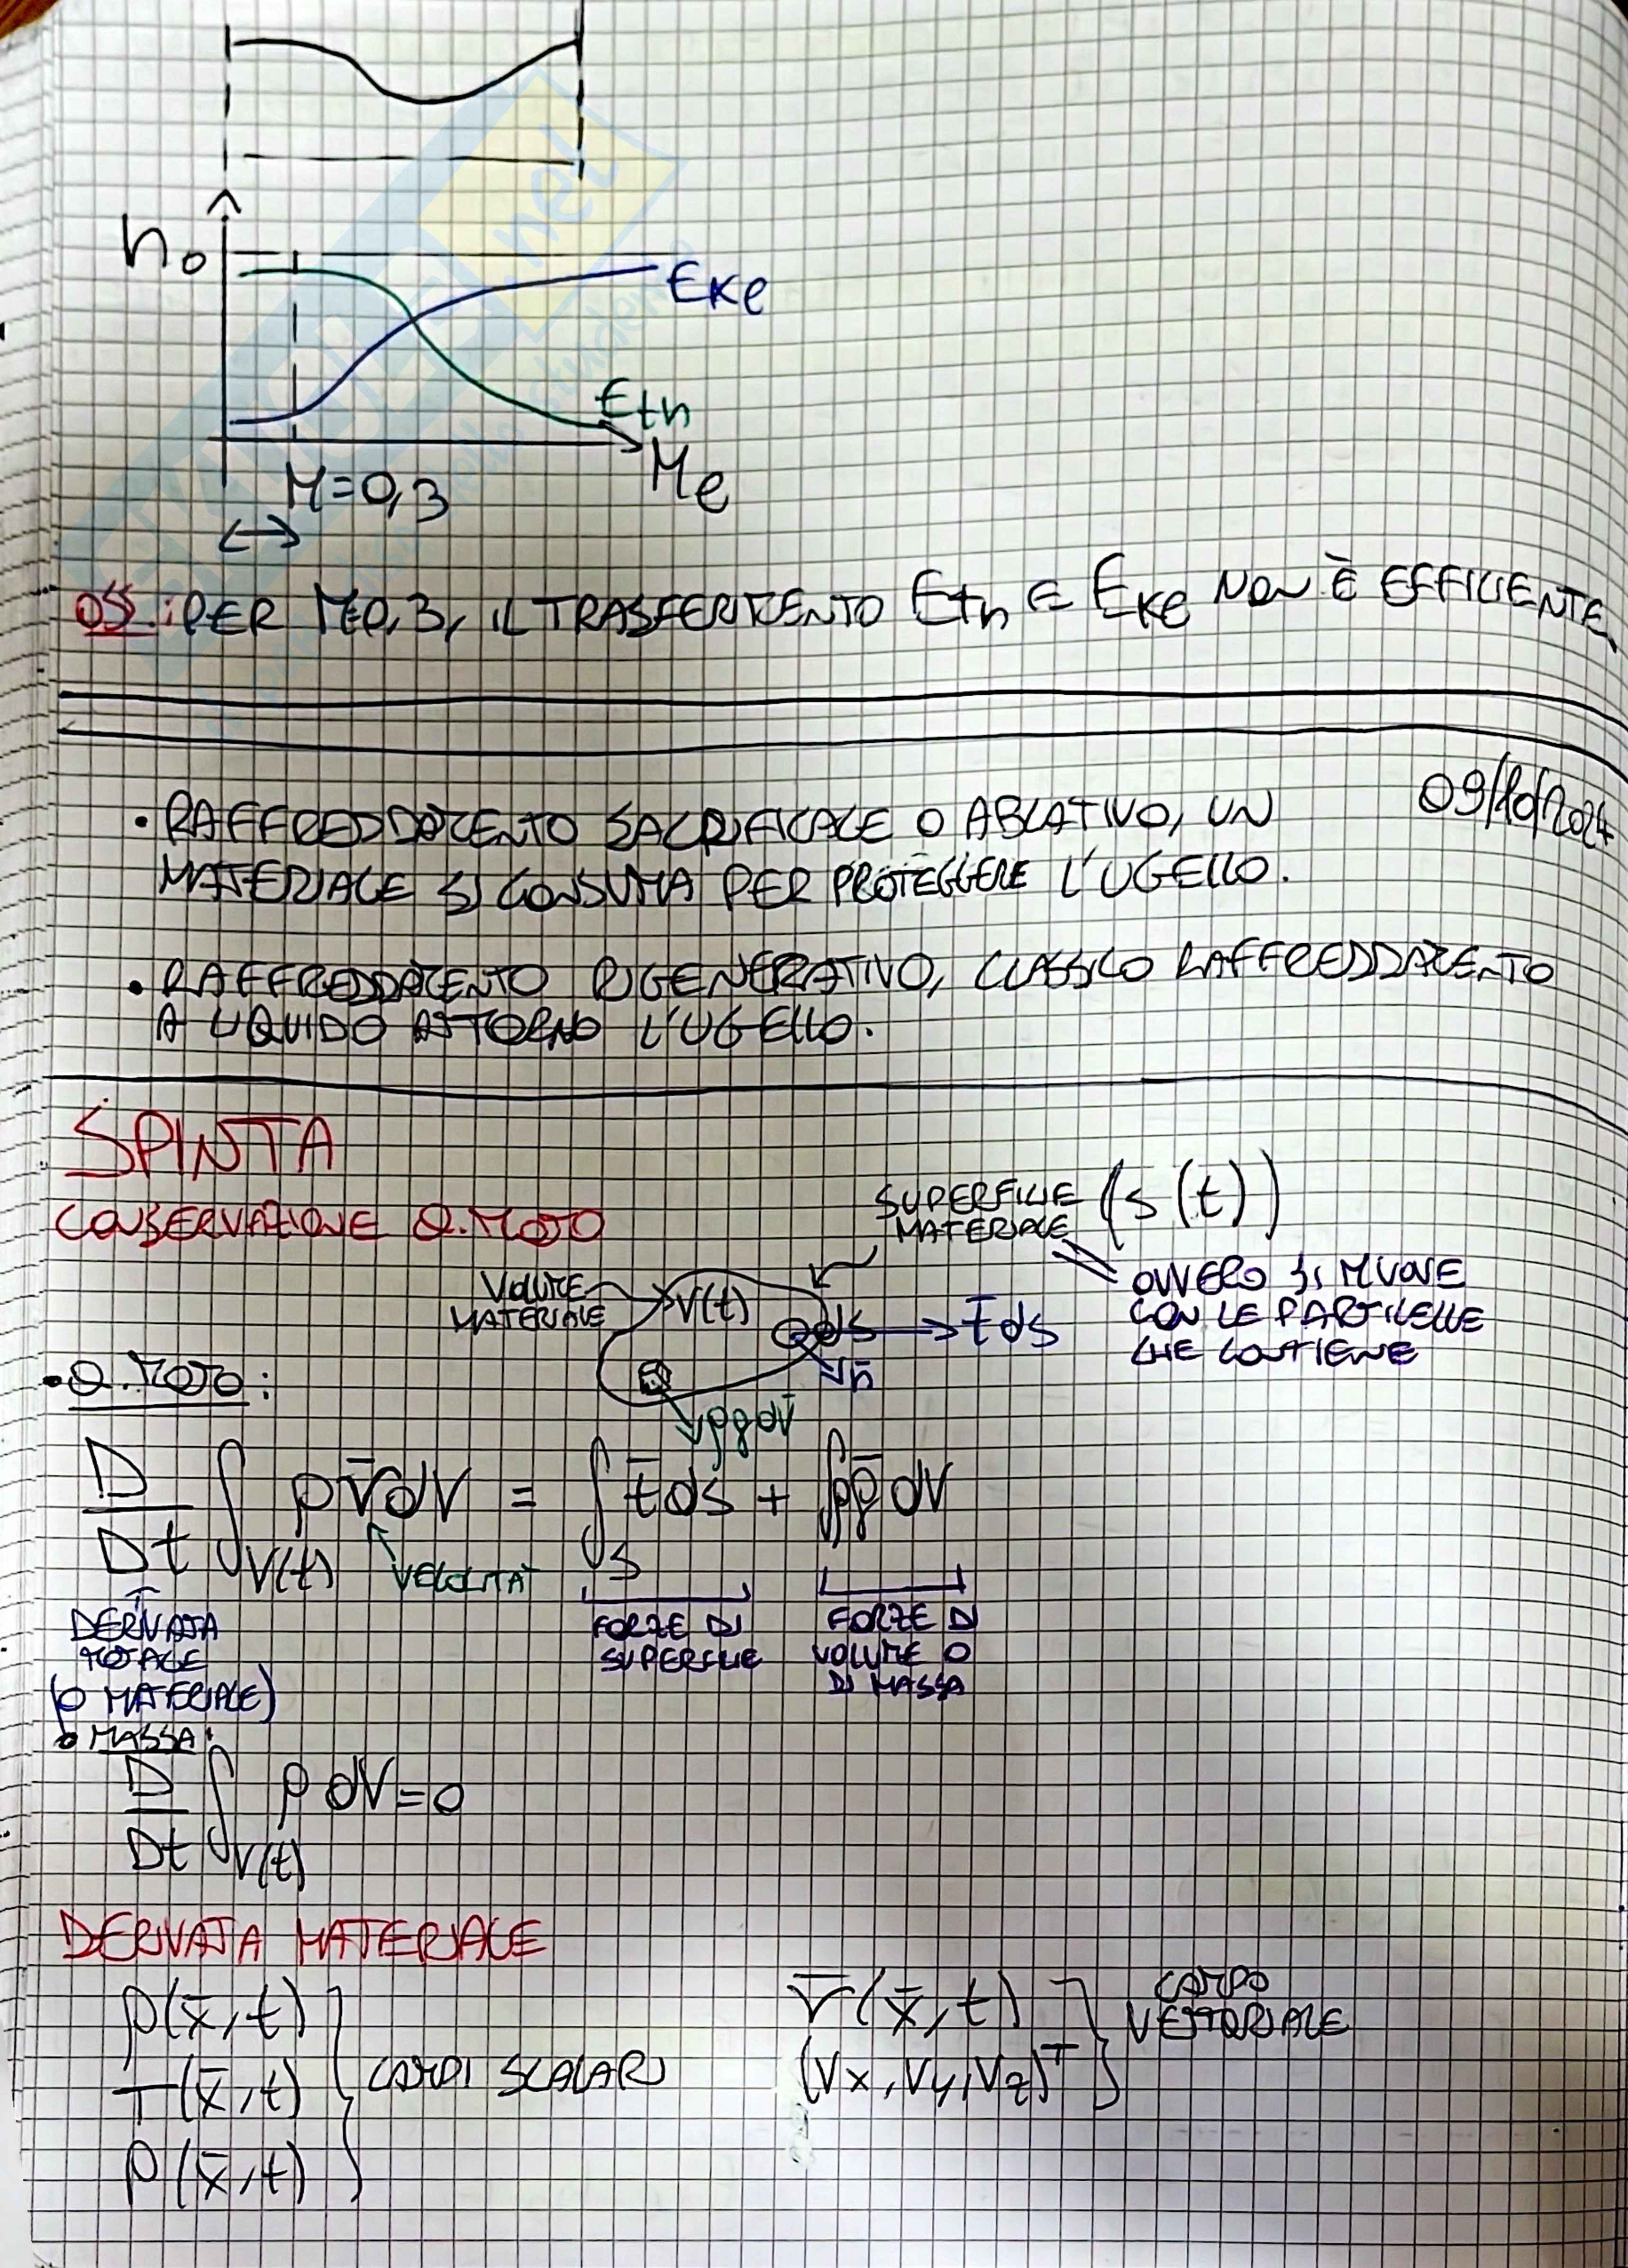 h₀
Eke
Eth
Me
M=0,3
OSS.: PER M≤0,3, IL TRASFERIMENTO Eth E Eke NON È EFFICIENTE
09/10/2024
• RAFFREDDAMENTO SACRIFICALE O ABLATIVO, UN
MATERIALE SI CONSUMA PER PROTEGGERE L'UGELLO.
• RAFFREDDAMENTO RIGENERATIVO, CLASSICO RAFFREDDAMENTO
A LIQUIDO ATTORNO L'UGELLO.
SPINTA
CONSERVAZIONE Q.MOTO
SUPERFICIE (s(t))
MATERIALE
OVVERO SI MUOVE
CON LE PARTICELLE
CHE CONTIENE
VOLUME
MATERIALE
V(t)
ds
t̄ ds
n̄
ρḡdV
• Q.MOTO:
D/Dt ∫V(t) ρv̄dV = ∫S t̄ds + ∫ρḡdV
VELOCITÀ
DERIVATA
TOTALE
(O MATERIALE)
FORZE DI
SUPERFICIE
FORZE DI
VOLUME O
DI MASSA
• MASSA:
D/Dt ∫V(t) ρdV=0
DERIVATA MATERIALE
ρ(x̄,t)
T(x̄,t)
P(x̄,t)
CAMPI SCALARI
v̄(x̄,t)
(Vx,Vy,Vz)ᵀ
CAMPO
VETTORIALE